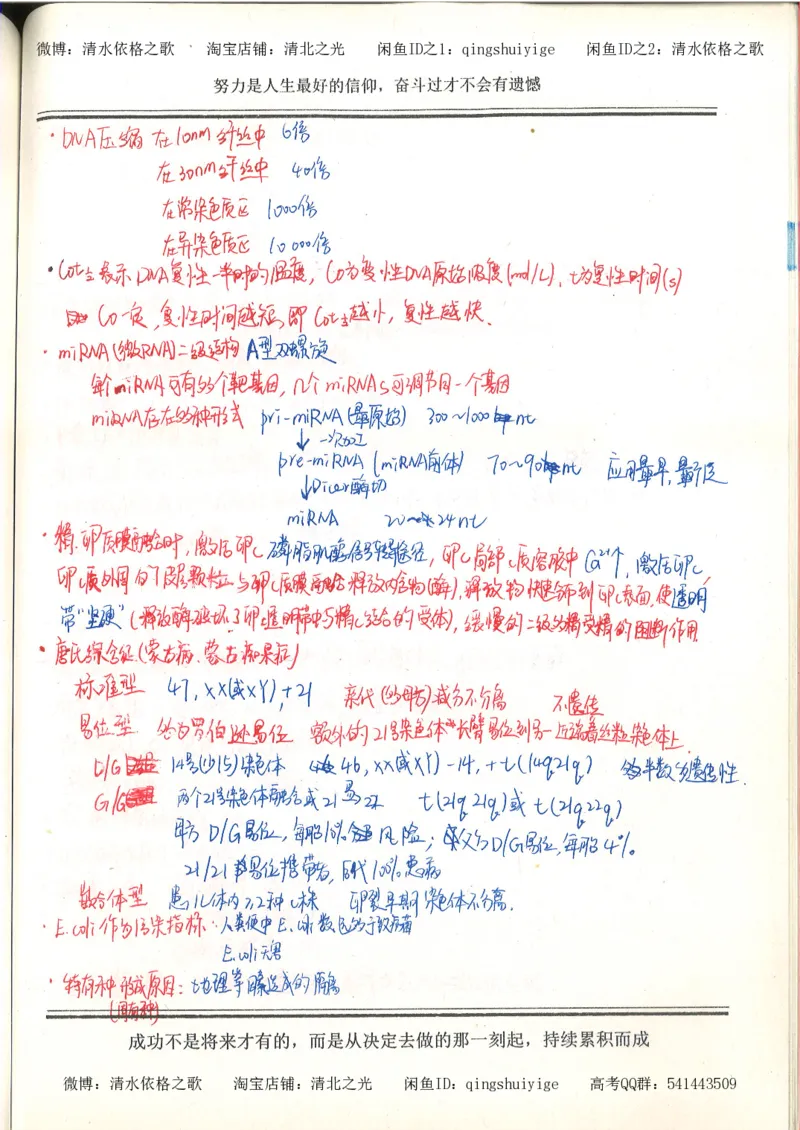 微博：清水依格之歌 淘宝店铺：清北之光 闲鱼ID之1：qingshuiyige 闲鱼ID之2：清水依格之歌
努力是人生最好的信仰，奋斗过才不会有遗憾
·DNA压缩 在10nm纤丝中 6倍
在30nm纤丝中 40倍
在常染色质区 1000倍
在异染色质区 10000倍
·Cot½表示DNA复性一半时的温度，C0为变性DNA原始浓度(mol/L)、t为复性时间(s)
C0一定，复性时间越短，即Cot½越小，复性越快.
·miRNA(微RNA)二级结构 A型双螺旋
每个miRNA可有多个靶基因，几个miRNAs可调节同一个基因
miRNA存在多种形式 pri-miRNA(最原始) 300~1000 nt
↓一次加工
pre-miRNA (miRNA前体) 70~90 nt 应用最早，最广泛
↓Dicer酶切
miRNA 20~24nt
·精、卵质膜融合时，激活卵c磷脂肌醇信号途径，卵c局部c质溶胶中Ca²⁺↑，激活卵c，
卵c质外周的皮层颗粒与卵c质膜融合释放内含物(酶)，释放物快速分布到卵c表面，使透明
带“坚硬”(释放酶破坏了卵c透明带中与精c结合的受体)，缓慢的二级多精受精的阻断作用
·唐氏综合征(蒙古病、蒙古痴呆症)
标准型 47，XX(或XY)，+21 亲代(多母方)减分不分离 不遗传
易位型 多为罗伯逊易位 额外的21号染色体长臂易位到另一近端着丝粒染色体上
D/G 14号(少15)染色体 46，XX(或XY)-14，+t(14q21q) 多半数为遗传性.
G/G 两个21号染色体融合或21易22 t(21q21q)或t(21q22q)
母为D/G易位，每胎10% 风险；父为D/G易位，每胎4%.
21/21易位携带者，后代100%患病
嵌合体型 患儿体内≥2种c株 卵裂早期染色体不分离.
·E.coli作为污染指标：人类便中E.coli数
E.coli
·特有种形成原因：地理等障碍造成的隔离
(固有种)
成功不是将来才有的，而是从决定去做的那一刻起，持续累积而成
微博：清水依格之歌 淘宝店铺：清北之光 闲鱼ID：qingshuiyige 高考QQ群：541443509